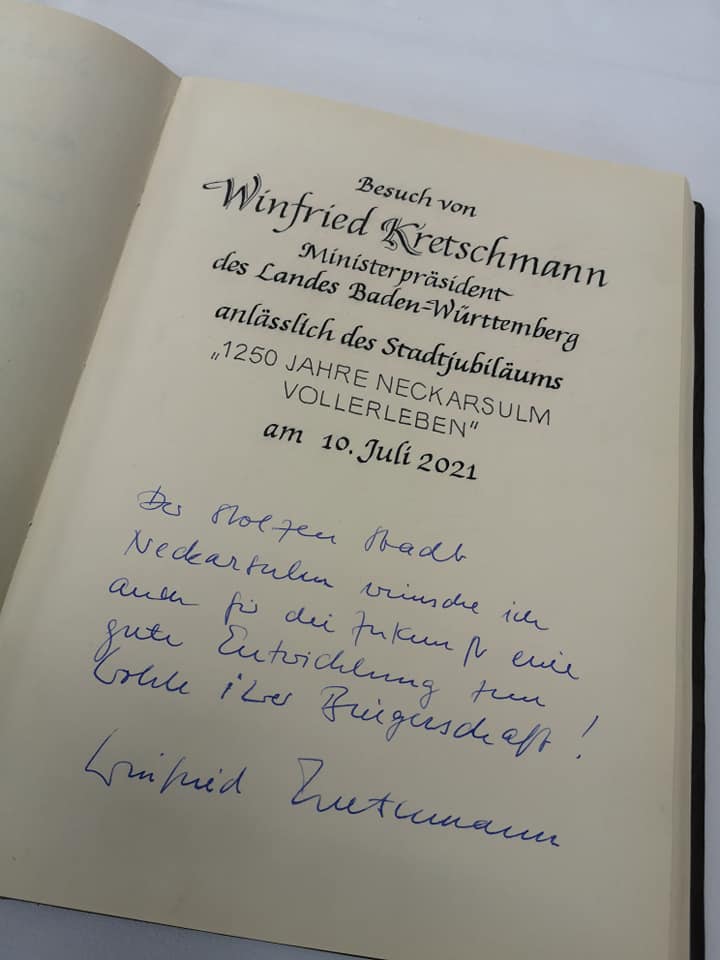 Besuch von
Winfried Kretschmann
Ministerpräsident
des Landes Baden-Württemberg
anlässlich des Stadtjubiläums
„1250 JAHRE NECKARSULM
VOLLERLEBEN"
am 10. Juli 2021
Der stolzen Stadt
Neckarsulm wünsche ich
auch für die Zukunft eine
gute Entwicklung zum
Wohle ihrer Bürgerschaft!
Winfried Kretschmann